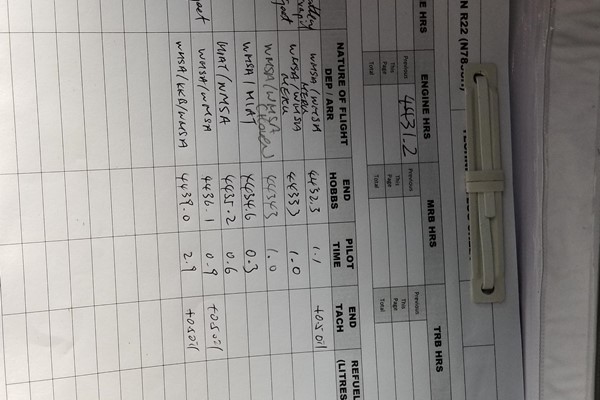 N R22 (N78
E HRS
ENGINE HRS
MRB HRS
TRB HRS
Previous 4431.2
Previous
Previous
This Page
This Page
This Page
Total
Total
Total
NATURE OF FLIGHT DEP / ARR
END HOBBS
PILOT TIME
END TACH
REFUEL (LITRES
WMSA/WMSA 4432.3 1.1 +0.5 oil
WMSA/WMSA 4433.3 1.0
WMSA/WMSA 4434.3 1.0
WMSA MIAT 4434.6 0.3
MIAT/WMSA 4435.2 0.6
WMSA/WMSA 4436.1 0.9 +0.5 oil
WMSA/KKB/WMSA 4439.0 2.9 +0.5 oil